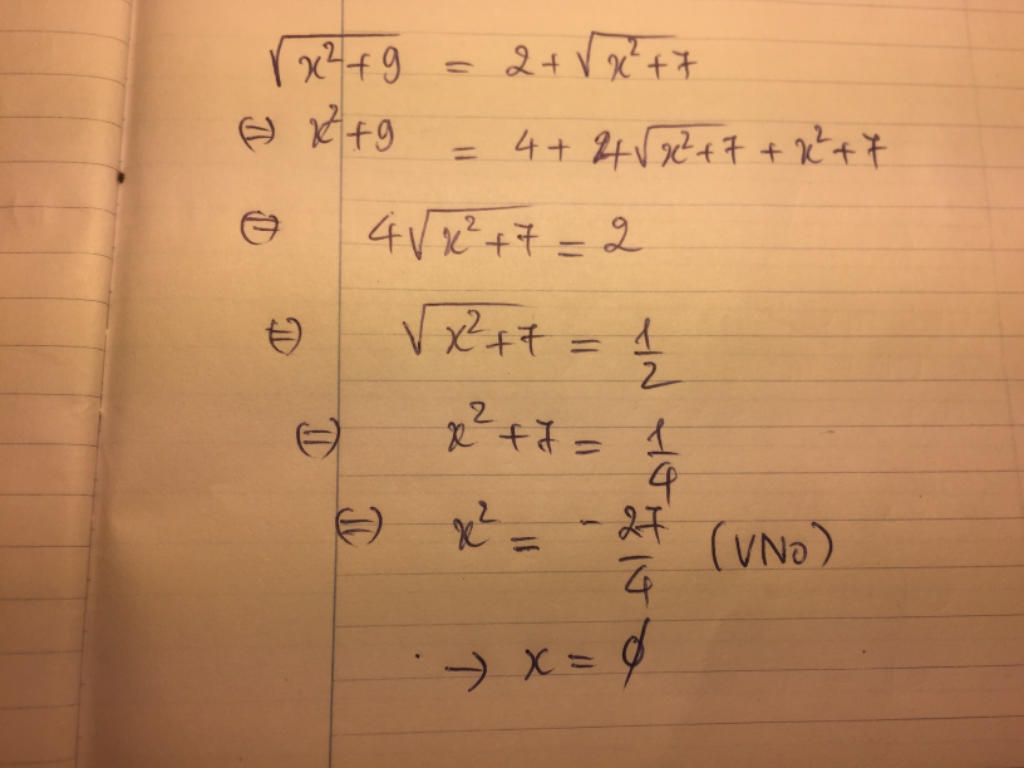 √(x²+9) = 2+√(x²+7)
⇔ x²+9 = 4+4√(x²+7)+x²+7
⇔ 4√(x²+7) = 2
⇔ √(x²+7) = 1/2
⇔ x²+7 = 1/4
⇔ x² = -27/4 (VNo)
→ x = ∅